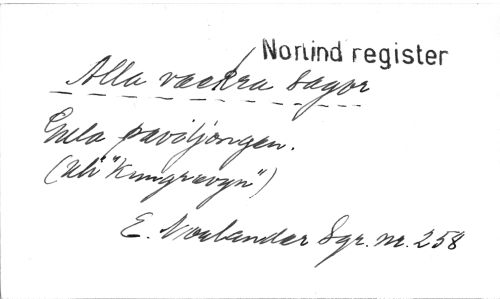 Norlind register
Alla vackra sagor
Hela paviljongen.
(uti "Kungsrevyn")
E. Norlander Sgr. nr. 258